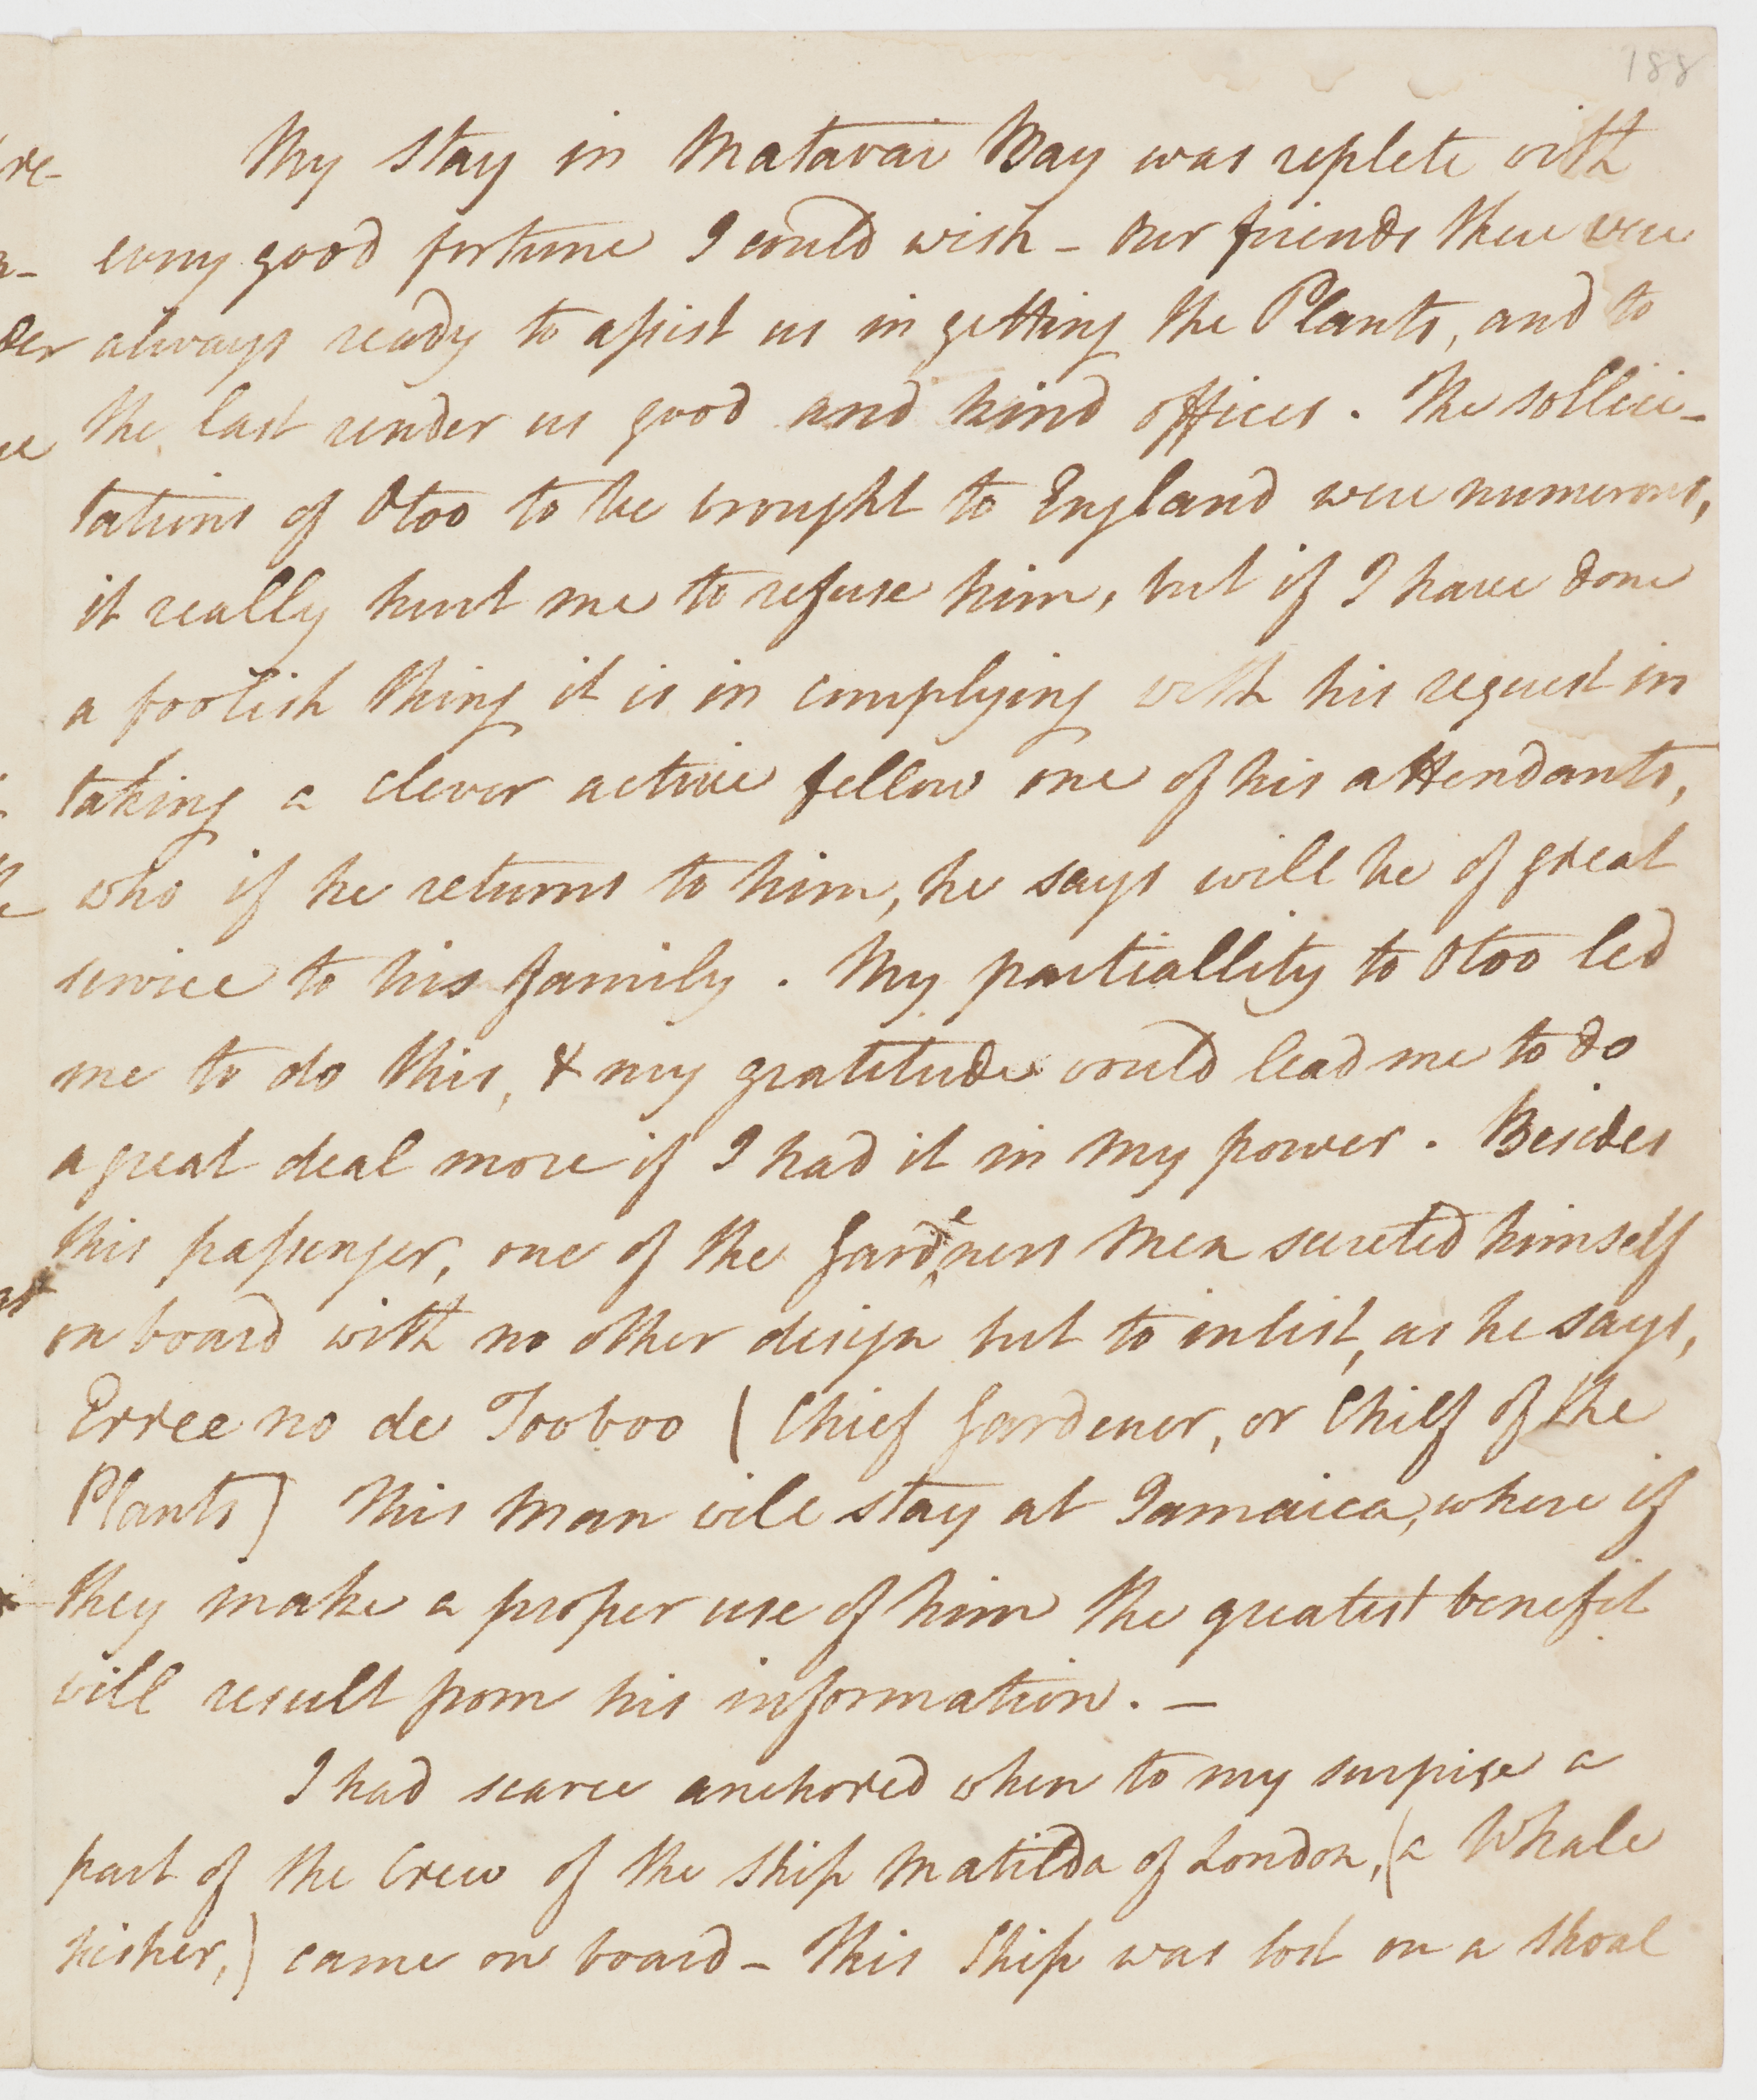 188
My stay in Matavai Bay was replete with
every good fortune I could wish - our friends there were
always ready to assist us in getting the Plants, and to
the last render us good and kind offices. The sollici-
tations of Otoo to be brought to England were numerous,
it really hurt me to refuse him, but if I have done
a foolish thing it is in complying with his request in
taking a clever active fellow one of his attendants,
who if he returns to him, he says will be of great
service to his family. My partiallity to Otoo led
me to do this, & my gratitude would lead me to do
a great deal more if I had it in my power. Besides
this passenger, one of the Gardeners Men secreted himself
on board with no other design but to inlist, as he says,
Erree no de Tooboo (Chief Gardener, or Chief of the
Plants) This Man will stay at Jamaica, where if
they make a proper use of him the greatest benefit
will result from his information. -
I had scarce anchored when to my surprise a
part of the Crew of the Ship Matilda of London, (a Whale
fisher,) came on board - This Ship was lost on a Shoal